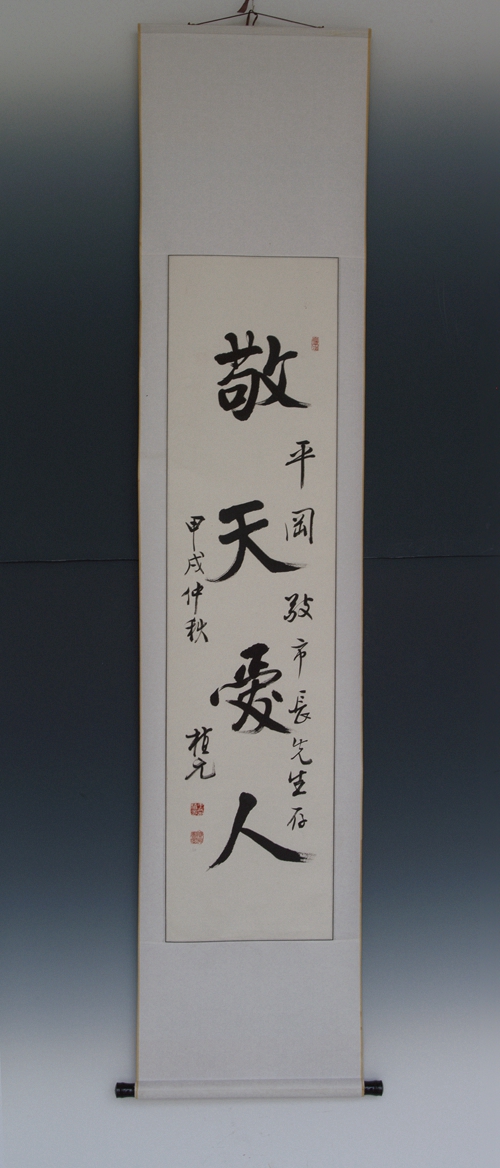 平岡敬市長先生存
敬天愛人
甲戌仲秋
植元